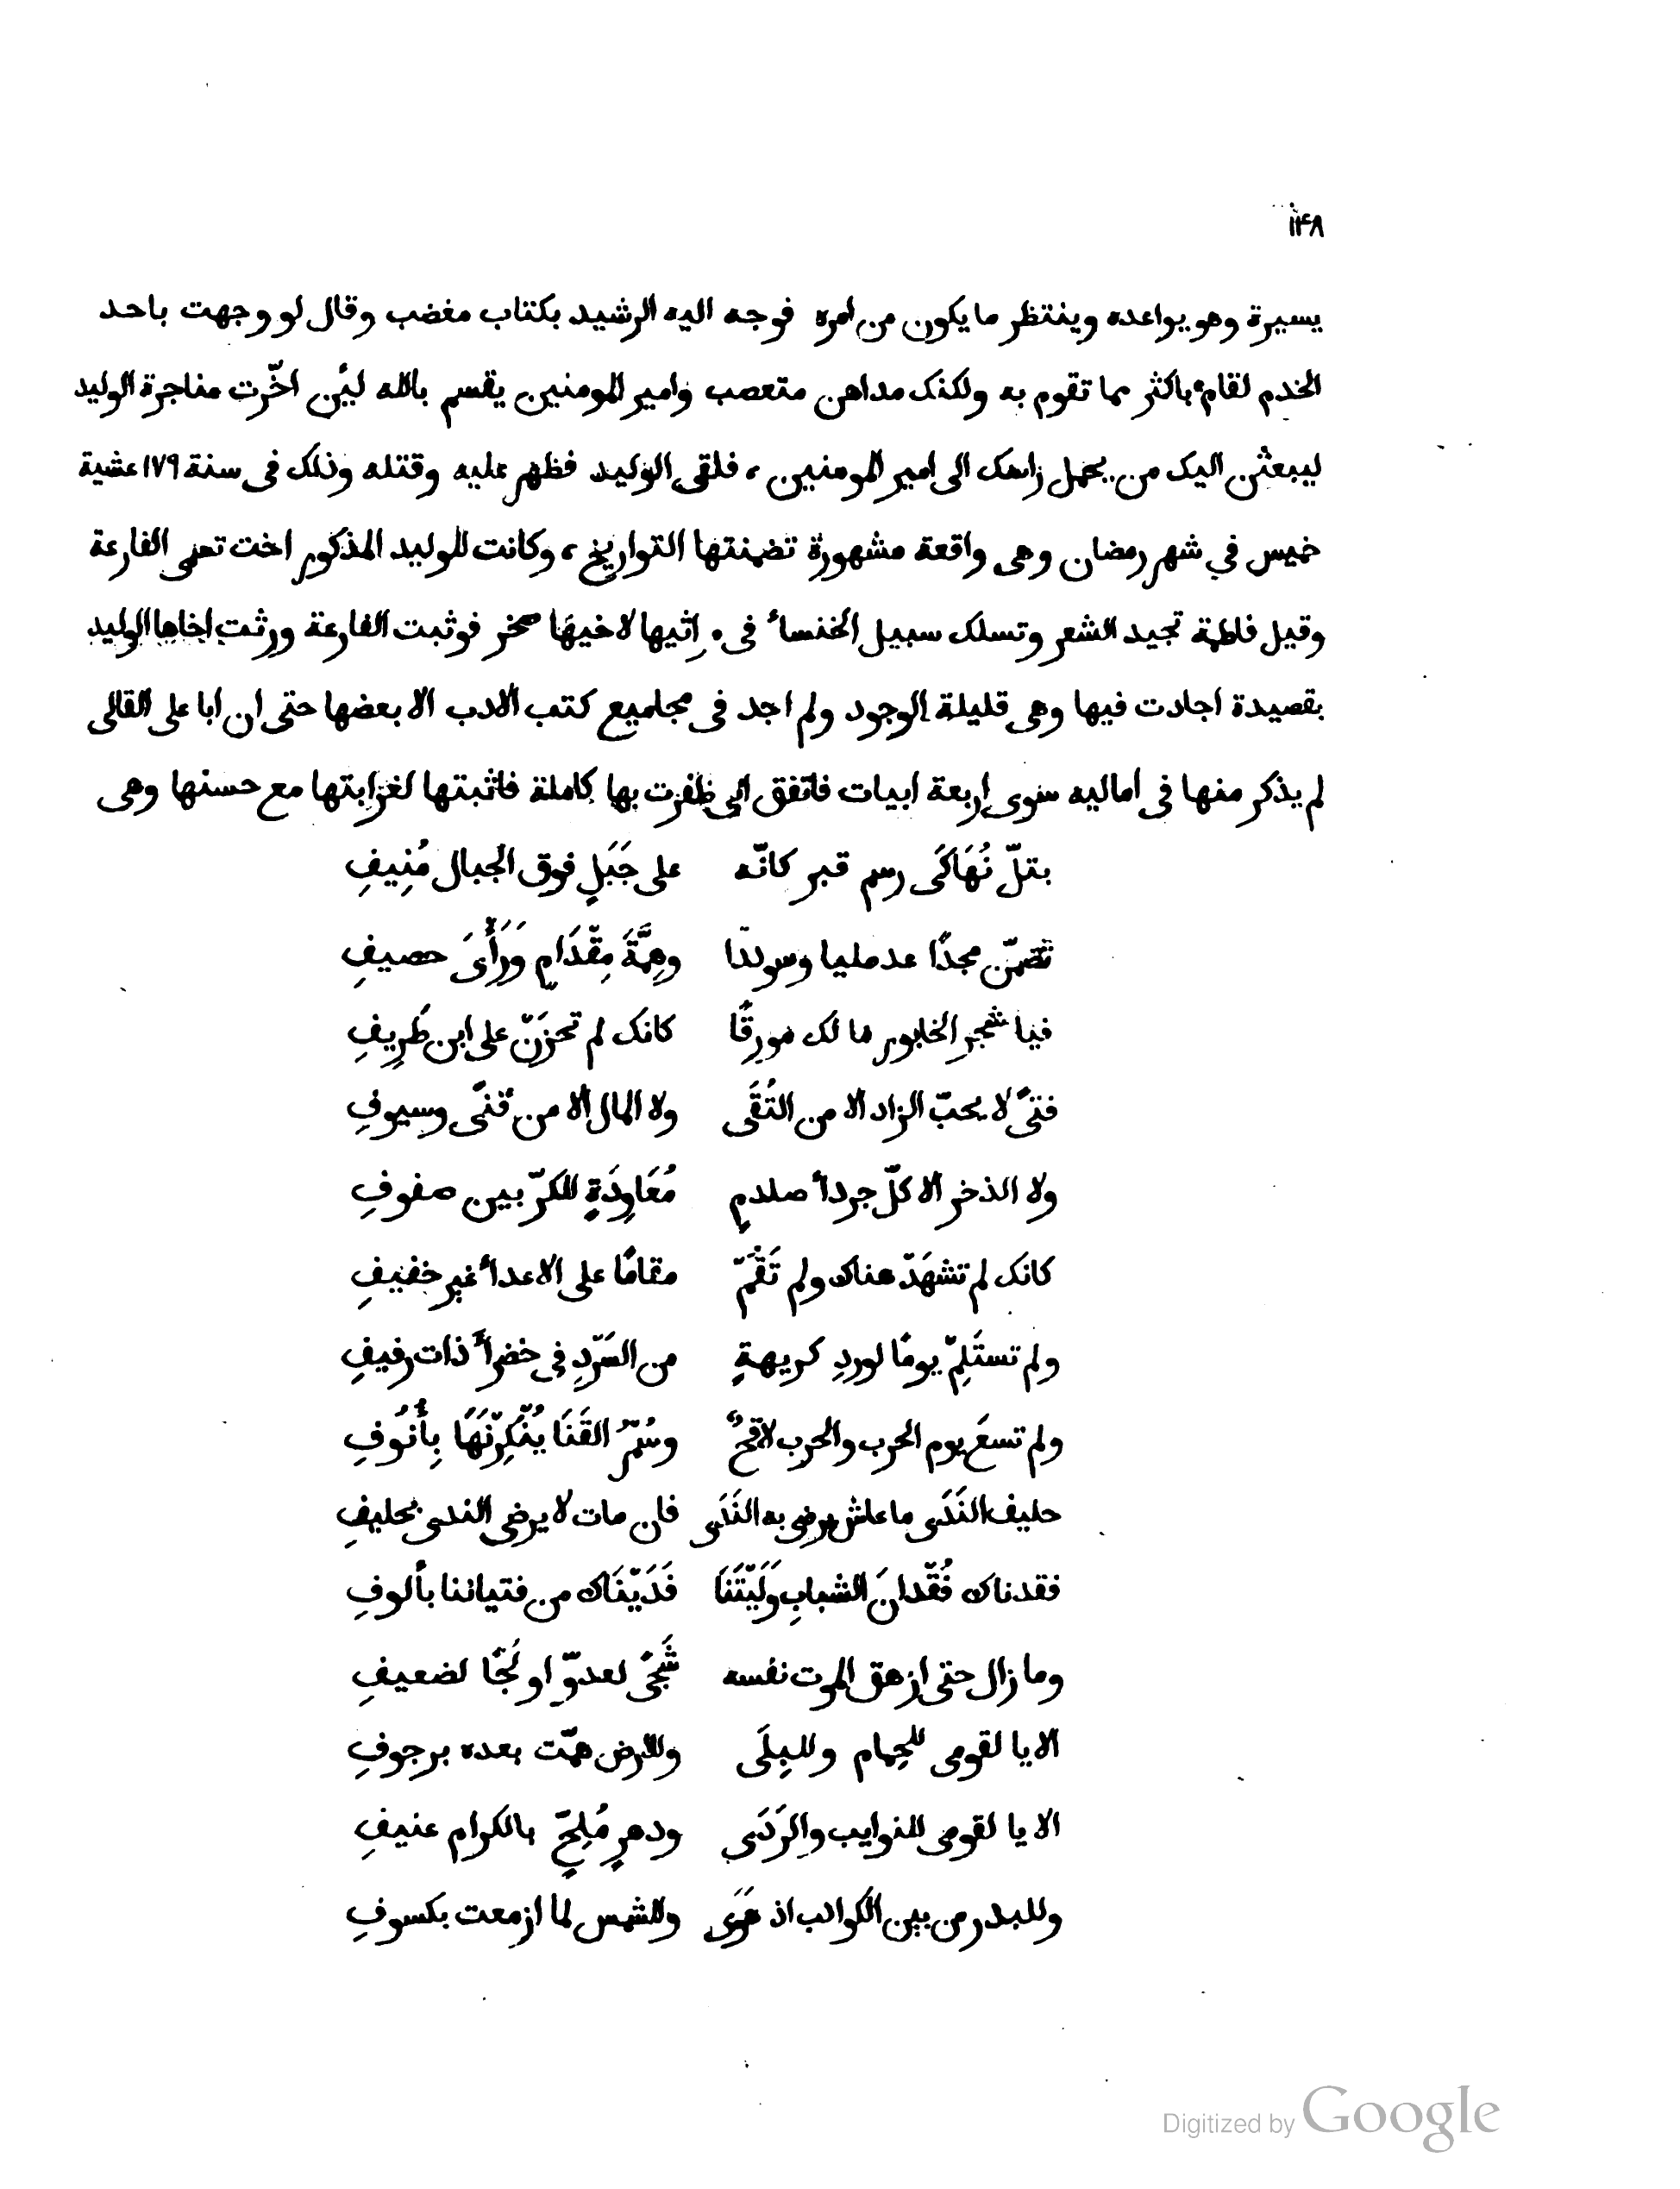 ١٤٨
يسيرة وهو يواعده وينتظر ما يكون من امره فوجه اليه الرشيد بكتاب مغضب وقال لو وجهت باحد
الخدم لقام باكثر مما تقوم به ولكنك مداهن متعصب وامير المومنين يقسم بالله لئن اخّرت مناجرة الوليد
ليبعثن اليك من يحمل راسك الى امير المومنين ، فلقى الوليد فظهر عليه وقتله وذلك فى سنة ١٧٩ عشية
خميس في شهر رمضان وهى واقعة مشهورة تضمنتها التواريخ ، وكانت للوليد المذكور اخت تسمى الفارعة
وقيل فاطمة تجيد الشعر وتسلك سبيل الخنسأ فى مراثيها لاخيهَا صخر فوثبت الفارعة ورثت اخاها الوليد
بقصيدة اجادت فيها وهى قليلة الوجود ولم اجد فى مجاميع كتب الادب الا بعضها حتى ان ابا على القالى
لم يذكر منها فى اماليه سوى اربعة ابيات فاتفق انى ظفرت بها كاملة فاثبتها لغرابتها مع حسنها وهى
بتلّ نُهَاكَى رسم قبر كانّه على جَبَلٍ فوق الجبال مُنِيفِ
تضمّن مجدًا عدمليا وسوددًا وهِمَّةَ مِقْدَامٍ وَرَأْىَ حصيفِ
فيا شجر الخابور ما لك مورقًا كانك لم تحزَنْ على ابن طَرِيفِ
فتىً لا يحبّ الزاد الا من التُقَى ولا المال الا من قنًى وسيوفِ
ولا الذخر الا كلّ جردأ صلدمٍ مُعَاوِدَةٍ للكرّ بين صفوفِ
كانك لم تشهَدْ هناك ولم تَقُمْ مقامًا على الاعدأ غير خفيفِ
ولم تستَلِمْ يومًا لوردِ كريهةٍ من السَرْدِ فى خضرأَ ذات رفيفِ
ولم تسعَ يوم الحرب والحرب لاقحٌ وسُمْرُ القَنَا يَنْكِزْنَهَا بِأُنُوفِ
حليف النَدَى ما عاش يرضى به النَدَى فان مات لا يرضى الندى بحليفِ
فقدناك فُقْدانَ الشبابِ وَلَيْتَنَا فَدَيْنَاك من فتياننا بألوفِ
وما زال حتى ازهق الموت نفسه شَجًى لعدوّ او لَجًا لضعيفِ
الا يا لقومى للحِمام وللبِلَى وللارض همّت بعده برجوفِ
الا يا لقومى للنوايب والرَدَى ودهرٍ مُلِحٍّ بالكرام عنيفِ
وللبدر من بين الكواكب اذ هَوَى وللشمس لما ازمعت بكسوفِ
Digitized by Google